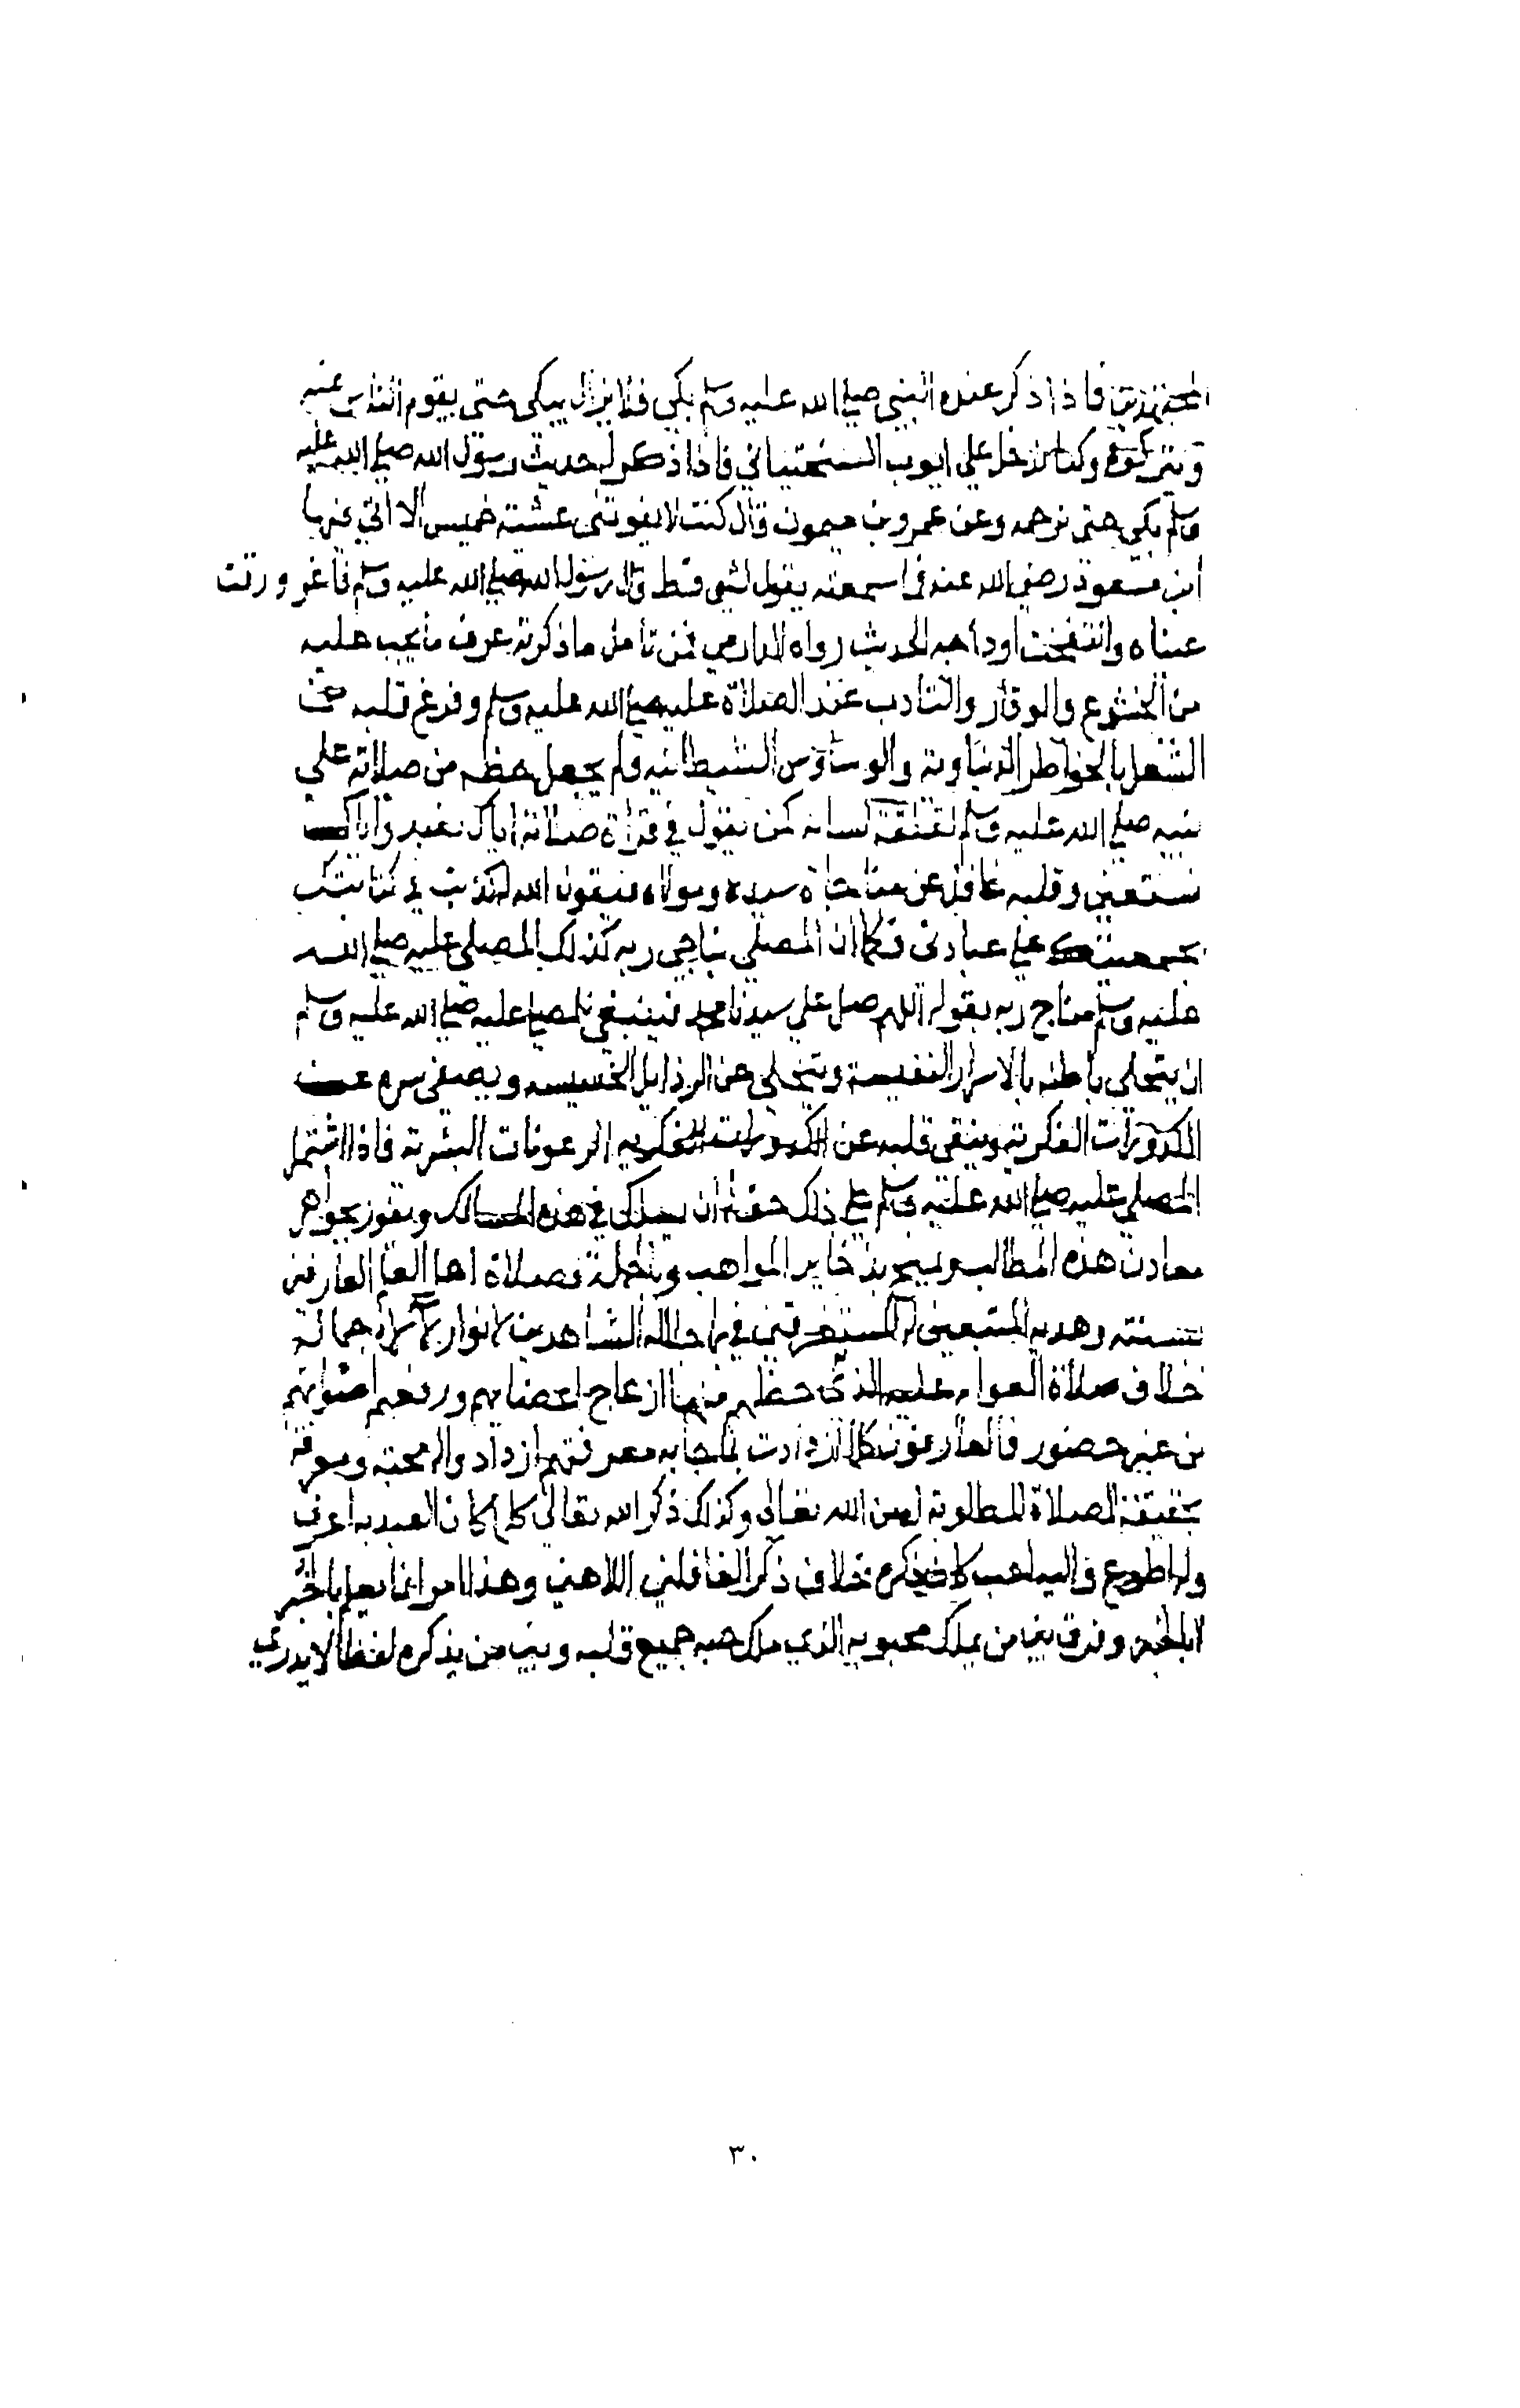 المجتهدين فاذا ذكر عنده النبي صلي الله عليه وسلم بكي فلا يزال يبكي حتى يقوم الناس عنه
ويتركوه وكنا ندخل علي ايوب السختياني فاذا ذكر له حديث رسول الله صلي الله عليه
وسلم بكي حتى نرحمه وعن عمرو بن ميمون قال كنت لا يفوتنى عشية خميس الا اتي فيها
ابن مسعود رضي الله عنه فما سمعته يقول لشى قط قال رسول الله صلي الله عليه وسلم فاغرورقت
عيناه وانتفخت اوداجه الحديث رواه الدارمي فمن تامل ما ذكرته عرف ما يجب عليه
من الخشوع والوقار والتادب عند الصلاة عليه صلي الله عليه وسلم وفرغ قلبه عن
الشغل بالخواطر الدنياوية والوساوس الشيطانيه ولم يجعل حظه من صلاته علي
نبيه صلي الله عليه وسلم لقلقة لسانه كمن يقول في قراة صلاته اياك نعبد واياك
نستعين وقلبه غافل عن مناجاة سيده ومولاه فيقول الله له كذبت في كتابتك
علي عبادتى فكما ان المصلي يناجي ربه كذلك المصلي عليه صلي الله
عليه وسلم مناج ربه بقوله اللهم صل علي سيدنا محمد فينبغي للمصلي عليه صلي الله عليه وسلم
ان يتحلي باطنه بالاسرار النفيسة ويتخلي عن الرذايل الخسيسه ويصفى سره عن
الكدورات الفكرية وينقي قلبه عن الكدورات الفكريه الرعونات البشرية فاذا اشتمل
المصلي عليه صلي الله عليه وسلم علي ذلك حق له ان يسلك في هذه المسالك ويفوز بجواهر
معادن هذه المطالب ويمنح بذخاير المواهب وبالجملة فصلاة اهل العلم العارفين
بسنته وهديه المتبعين له المستغرقين في جلاله الشاهدين لانوار لآلاء جماله
خلاف صلاة العوام عليه الذى حظهم منها ازعاج اعضايهم ورفعهم اصواتهم
من غير حضور فالعارفون كلما ازدادت بما جا به معرفتهم ازدادوا له محبة ومعرفة
بحقيقة الصلاة المطلوبة له من الله تعالى وكذلك ذكر الله تعالى كلما كان العبد به اعرف
وله اطوع واليه احب كان ذكره خلاف ذكر الغافلين اللاهين وهذا امر انما يعلم بالخبر
لا بالخبر وفرق بين من يملك محبوبه الذي ملك حبه جميع قلبه وبين من يذكره لفظا لا يدري
٣٠